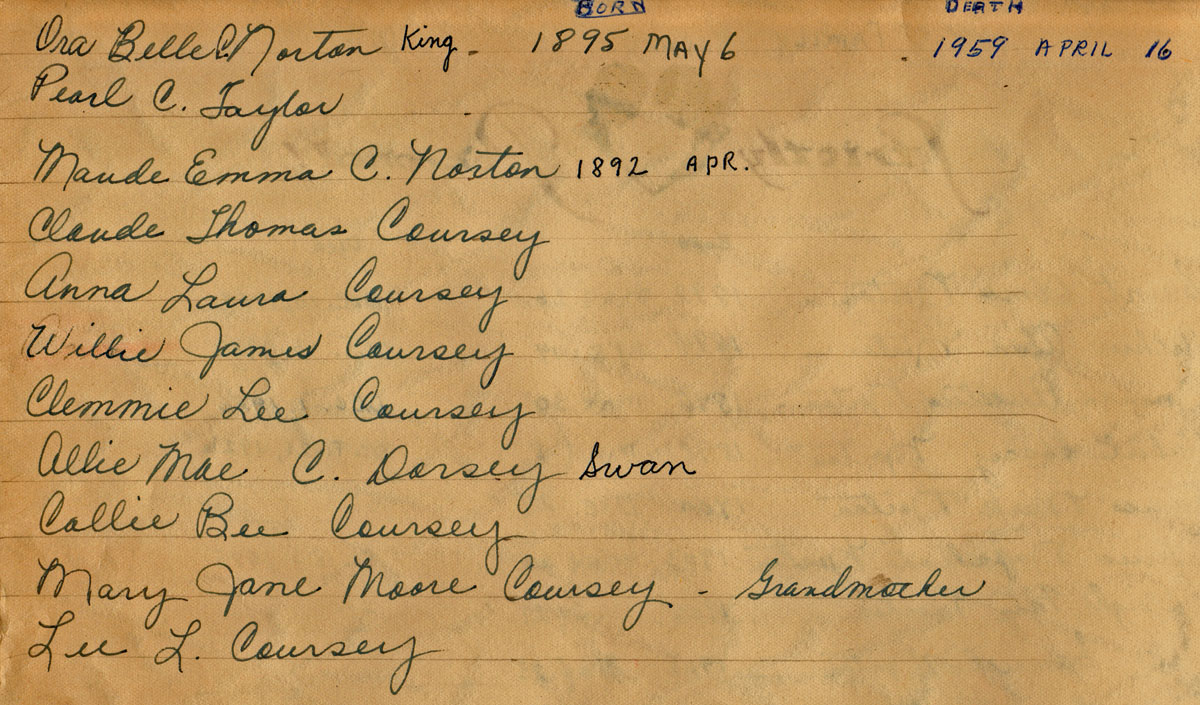 BORN DEATH
Ora Belle C Norton King - 1895 MAY 6 1959 APRIL 16
Pearl C. Taylor
Maude Emma C. Norton 1892 APR.
Claude Thomas Coursey
Anna Laura Coursey
Willie James Coursey
Clemmie Lee Coursey
Allie Mae C. Dorsey Swan
Callie Bee Coursey
Mary Jane Moore Coursey - Grandmother
Lee L. Coursey